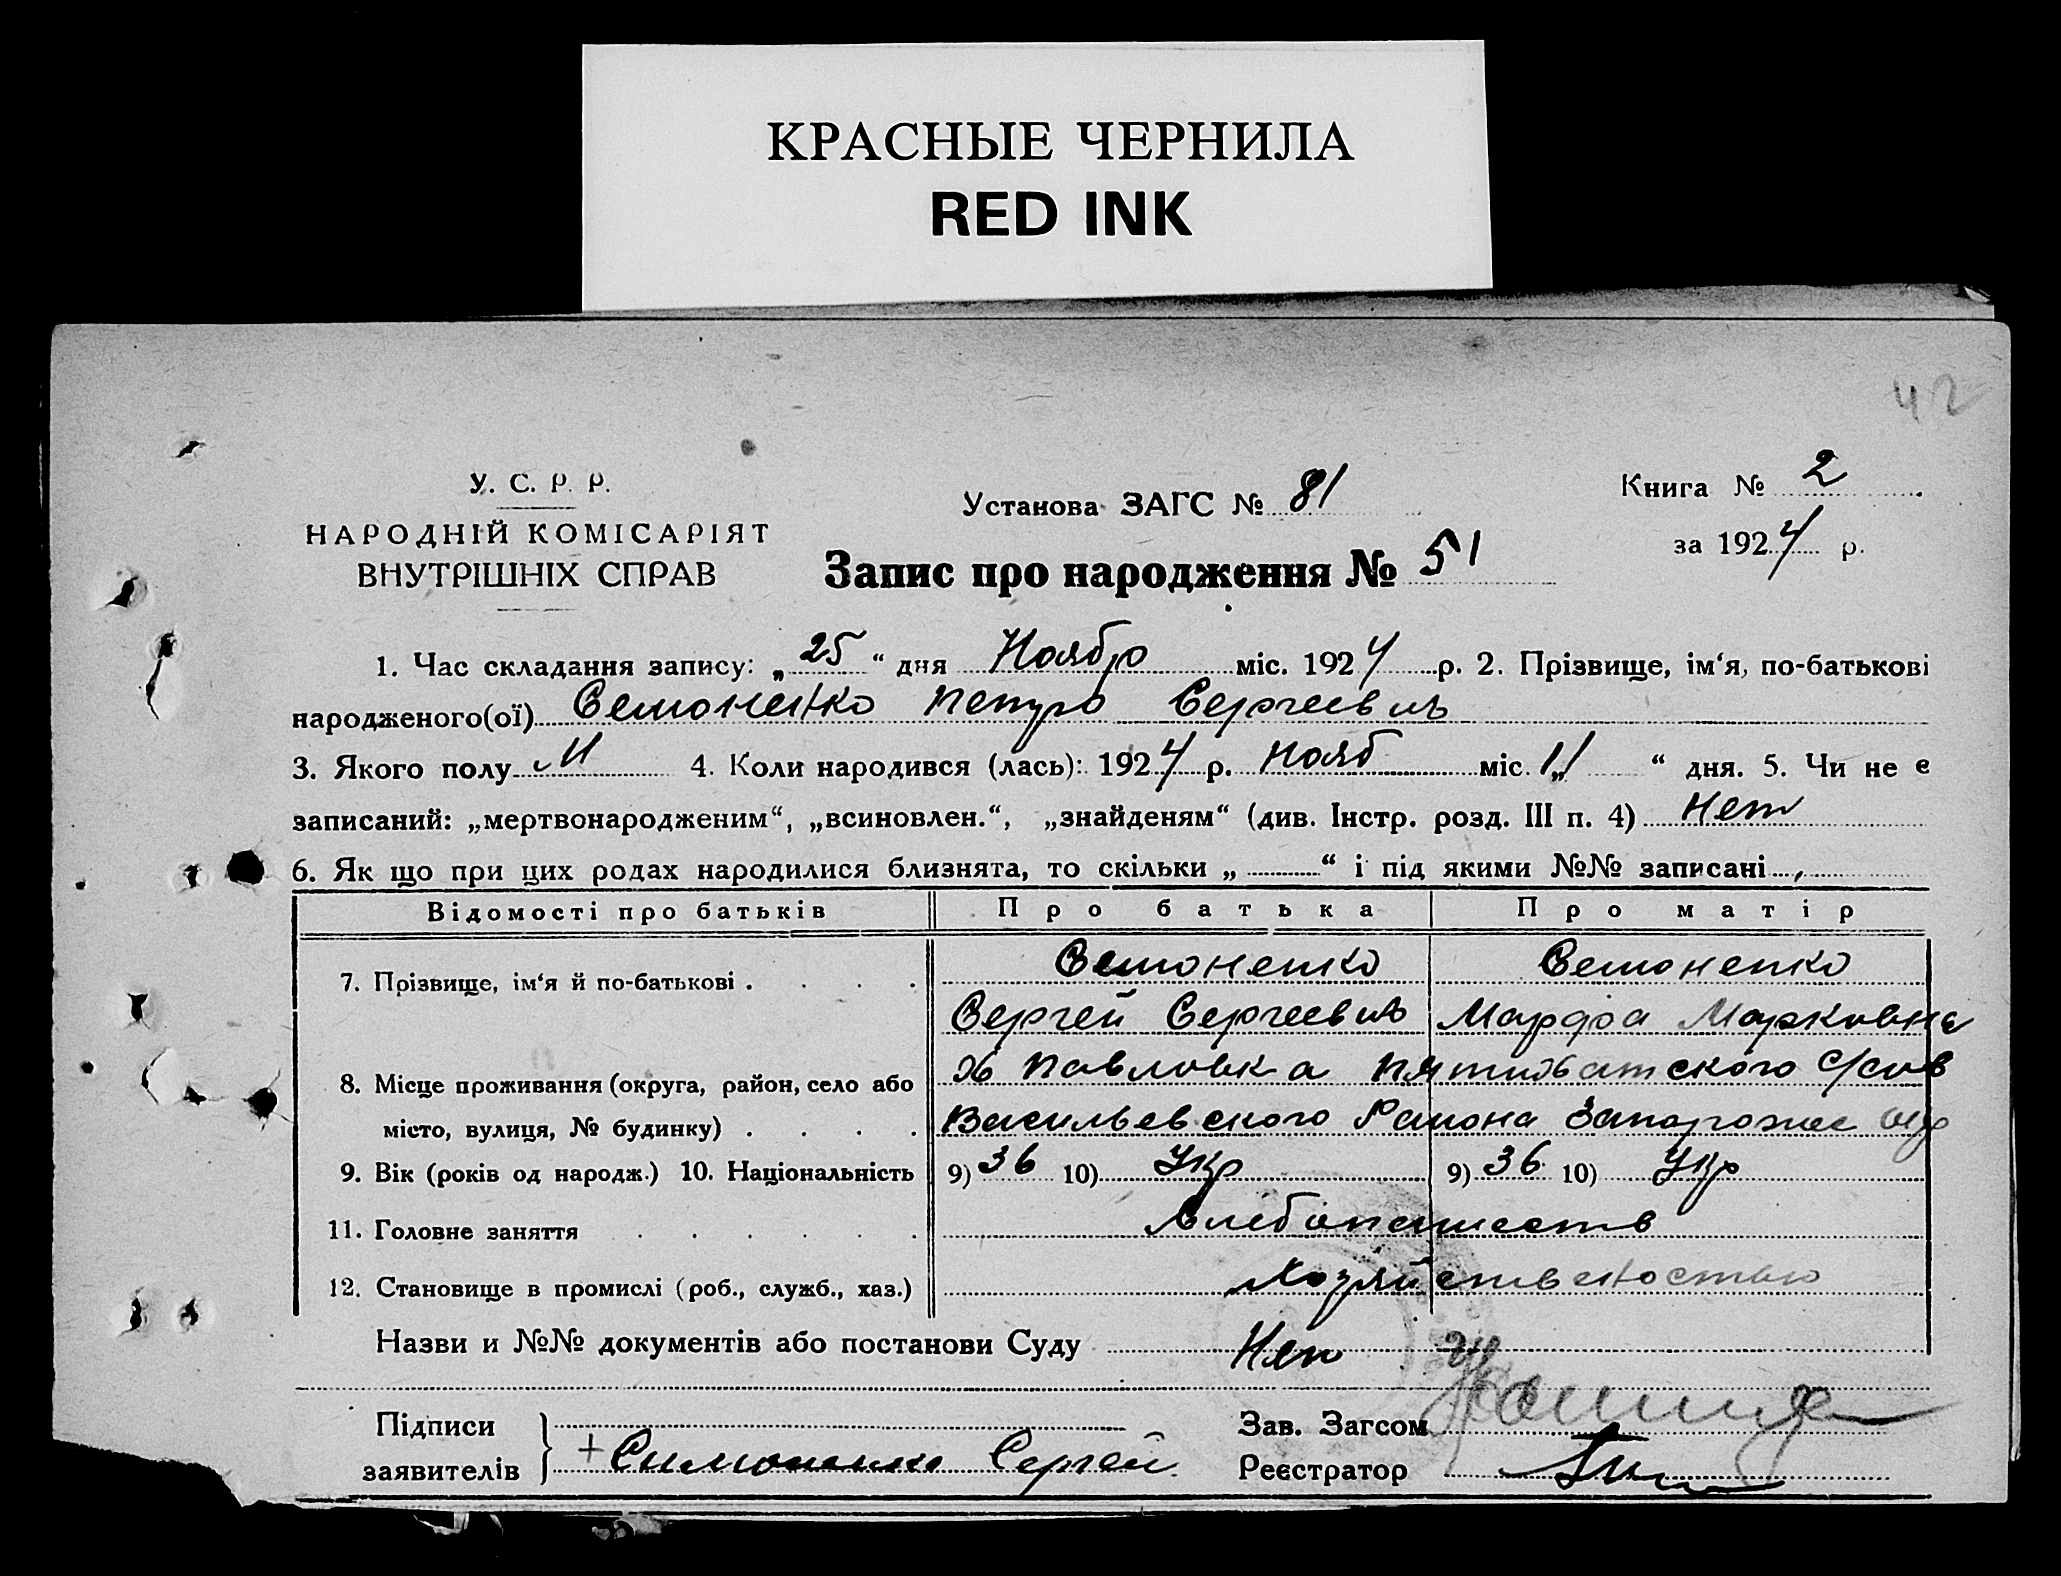 КРАСНЫЕ ЧЕРНИЛА
RED INK
42
У. С. Р. Р.
НАРОДНІЙ КОМІСАРІЯТ
ВНУТРІШНІХ СПРАВ
Установа ЗАГС № 81
Книга № 2
за 1924 р.
Запис про народження № 51
1. Час складання запису: „25“ дня Ноябро міс. 1924 р. 2. Прізвище, ім‘я, по-батькові
народженого(ої) Семоненко Петро Сергеевич
3. Якого полу М 4. Коли народився (лась): 1924 р. Нояб міс. „11“ дня. 5. Чи не є
записаний: „мертвонародженим“, „всиновлен.“, „знайденям“ (див. Інстр. розд. III п. 4) Нет
6. Як що при цих родах народилися близнята, то скільки „ “ і під якими №№ записані
Відомості про батьків Про батька Про матір
7. Прізвище, ім‘я й по-батькові Семоненко Семоненко
Сергей Сергеевич Марфа Марковна
8. Місце проживання (округа, район, село або Х Павловка Пятихатского С/сов
місто, вулиця, № будинку) Васильевского Района Запорожс окр
9. Вік (років од народж.) 10. Національність 9) 36 10) Укр 9) 36 10) Укр
11. Головне заняття Хлебопашеств
12. Становище в промислі (роб., служб., хаз.) Хозяйственостью
Назви и №№ документів або постанови Суду Нет
Підписи
заявителів + Симоненко Сергей
Зав. Загсом
Реєстратор